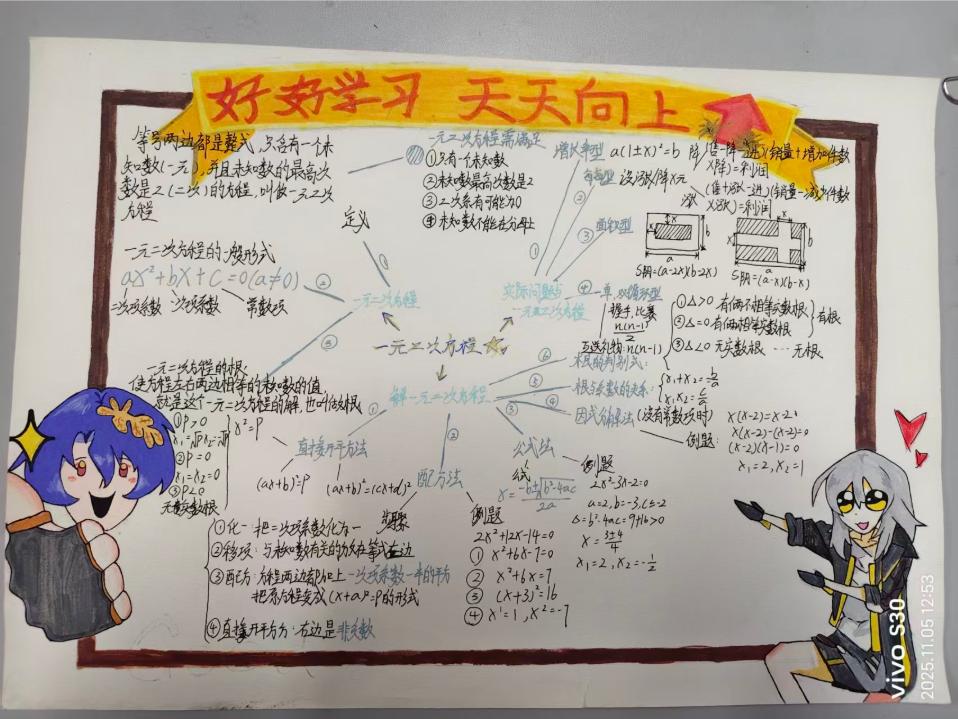 好好学习 天天向上
等号两边都是整式,只含有一个未
知数(一元),并且未知数的最高次
数是2(二次)的方程,叫做一元二次
方程
定义
①
一元二次方程的一般形式
ax²+bx+c=0(a≠0)
二次项系数 一次项系数 常数项
②
一元二次方程
③
一元二次方程的根:
使方程左右两边相等的未知数的值
就是这个一元二次方程的解,也叫做根
一元二次方程需满足
①只有一个未知数
②未知数最高次数是2
③二次系有可能为0
④未知数不能在分母上
增长率型 a(1±x)²=b
设涨/降x元
降 (售-降-进)(销量+增加件数
×降)=利润
涨 (售+涨-进)(销量-减少件数
×涨)=利润
①
②
③ 面积型
x
b
a
S阴=(a-2x)(b-2x)
x
x
b
a
S阴=(a-x)(b-x)
实际问题与
一元二次方程
④ 单,双循环型
握手,比赛
n(n-1)/2
互送礼物:n(n-1)
一元二次方程
⑥ 根的判别式:
①△>0 有俩不相等实数根
②△=0 有俩相等实数根
有根
③△<0 无实数根 … 无根
⑤ 根与系数的关系:
x₁+x₂=-b/a
x₁x₂=c/a
④ 因式分解法(没有常数项时)
例题:
x(x-2)=x-2
x(x-2)-(x-2)=0
(x-2)(x-1)=0
x₁=2,x₂=1
解一元二次方程
①
直接开平方法
x²=P
①P>0
②P=0
x₁=x₂=0
③P<0
无实数根
(ax+b)²=P
(ax+b)²=(cx+d)²
②
配方法
步骤
①化一:把二次项系数化为一
②移项:与未知数有关的放在等式左边
③配方:方程两边都加上一次项系数一半的平方
把原方程变成(x+a)²=P的形式
④直接开平方:右边是非负数
例题
2x²+12x-14=0
①x²+6x-7=0
②x²+6x=7
③(x+3)²=16
④x¹=1,x²=-7
③
公式法
公式
x=(-b±√b²-4ac)/2a
例题
2x²-3x-2=0
a=2,b=-3,c=-2
△=b²-4ac=9+16>0
x=(3±4)/4
x₁=2,x₂=-1/2
vivo S30
2025.11.05 12:53